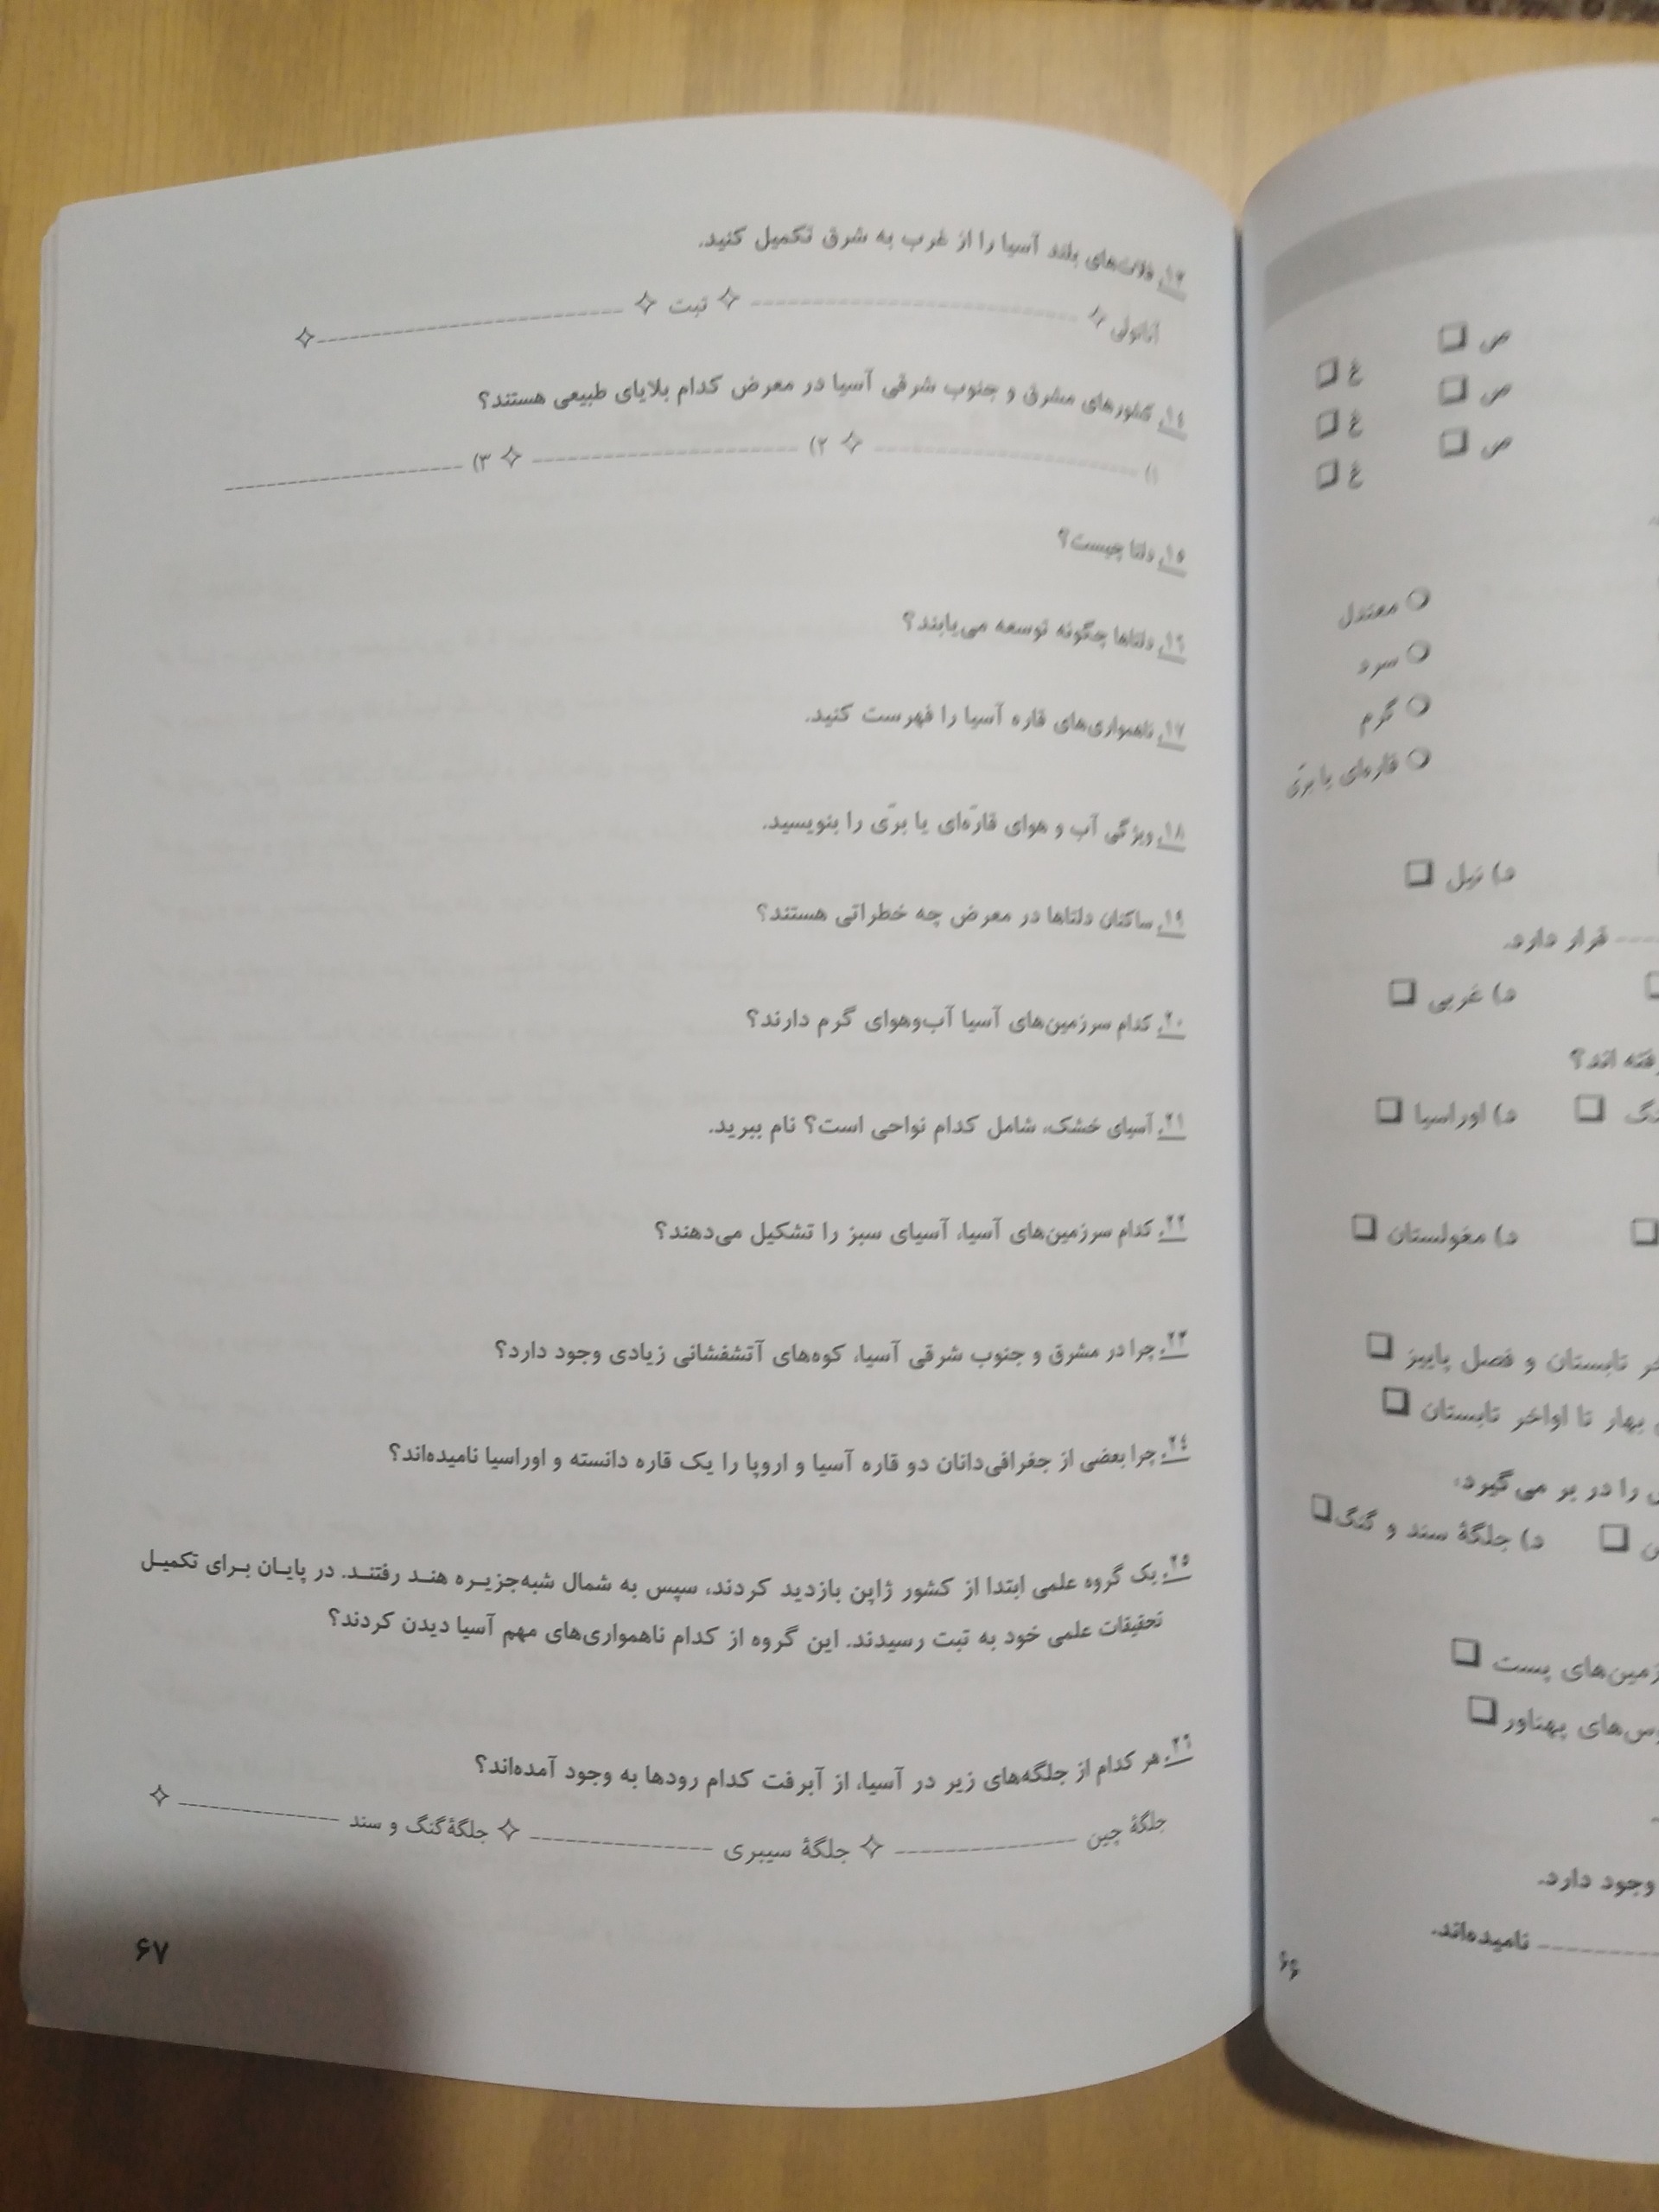 ۱۳. فلات‌های بلند آسیا را از غرب به شرق تکمیل کنید.
آناتولی ✧ ---------- ✧ تبت ✧ ---------- ✧
۱۴. کشورهای مشرق و جنوب شرقی آسیا در معرض کدام بلایای طبیعی هستند؟
۱) ---------- ✧ ۲) ---------- ✧ ۳) ----------
۱۵. دلتا چیست؟
۱۶. دلتاها چگونه توسعه می‌یابند؟
۱۷. ناهمواری‌های قاره آسیا را فهرست کنید.
۱۸. ویژگی آب و هوای قارّه‌ای یا برّی را بنویسید.
۱۹. ساکنان دلتاها در معرض چه خطراتی هستند؟
۲۰. کدام سرزمین‌های آسیا آب‌وهوای گرم دارند؟
۲۱. آسیای خشک، شامل کدام نواحی است؟ نام ببرید.
۲۲. کدام سرزمین‌های آسیا، آسیای سبز را تشکیل می‌دهند؟
۲۳. چرا در مشرق و جنوب شرقی آسیا، کوه‌های آتشفشانی زیادی وجود دارد؟
۲۴. چرا بعضی از جغرافی‌دانان دو قاره آسیا و اروپا را یک قاره دانسته و اوراسیا نامیده‌اند؟
۲۵. یک گروه علمی ابتدا از کشور ژاپن بازدید کردند، سپس به شمال شبه‌جزیره هند رفتند. در پایان برای تکمیل
تحقیقات علمی خود به تبت رسیدند. این گروه از کدام ناهمواری‌های مهم آسیا دیدن کردند؟
۲۶. هر کدام از جلگه‌های زیر در آسیا، از آبرفت کدام رودها به وجود آمده‌اند؟
جلگهٔ چین ---------- ✧ جلگهٔ سیبری ---------- ✧ جلگهٔ گنگ و سند ---------- ✧
۶۷
ص ❏ غ ❏
ص ❏ غ ❏
ص ❏ غ ❏
○ معتدل
○ سرد
○ گرم
○ قاره‌ای یا برّی
د) نیل ❏
---- قرار دارد.
د) غربی ❏
اند؟
❏ د) اوراسیا ❏
د) مغولستان ❏
تابستان و فصل پاییز ❏
بهار تا اواخر تابستان ❏
را در بر می‌گیرد،
❏ د) جلگهٔ سند و گنگ ❏
زمین‌های پست ❏
های پهناور ❏
وجود دارد.
---------- نامیده‌اند.
۶۶